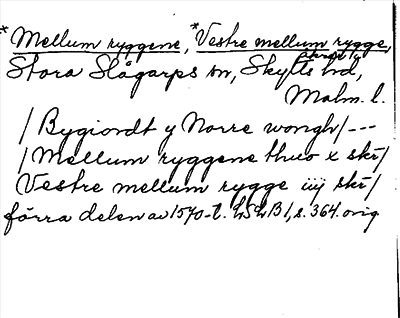 *Mellum ryggene, *Vestre mellum rygge,
Stora Slågarps sn, Skytts hd,
Malm. l.
/ Bygiordt y Norre wongh/ ---
/ Mellum ryggene thuo x skr/
Vestre mellum rygge iiij skr/
förra delen av 1570-t. LSLB1, s. 364. orig